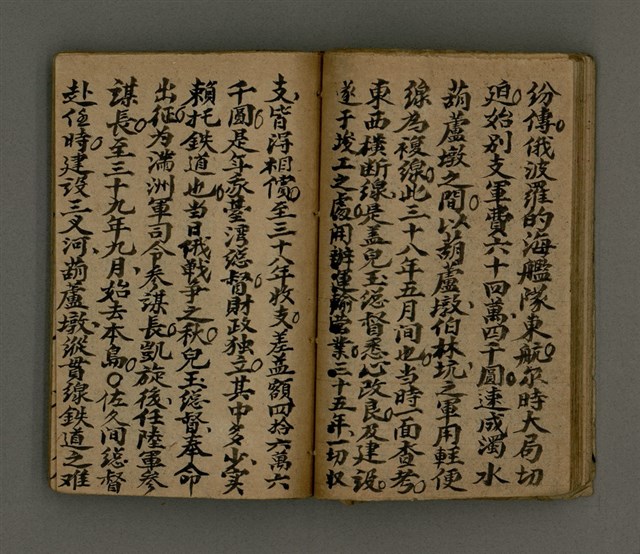 紛傳。俄波羅的海艦隊東航。尔時大局切
迫。始别支軍費六十四萬四千圓。速成濁水
葫蘆墩之間。以葫蘆墩伯林坑之軍用軽便
線為複線。此三十八年五月間也。当時一面查考。
東西横断線是盖兒玉総督悉心改良及建設。
遂于竣工之處用辦運輸営業。三十五年一切収
支皆淂相償。至三十八年收支差益額四拾六萬六
千圓。是年家臺湾総督財政独立。其中多少实
賴托鉄道也。当日俄戰爭之秋。兒玉総督奉命
出征为滿洲軍司令参謀長。凱旋後任陸軍参
謀長。至三十九年九月始去本島。○佐久间総督
赴任時建設三叉河葫蘆墩縦貫線鉄道之难